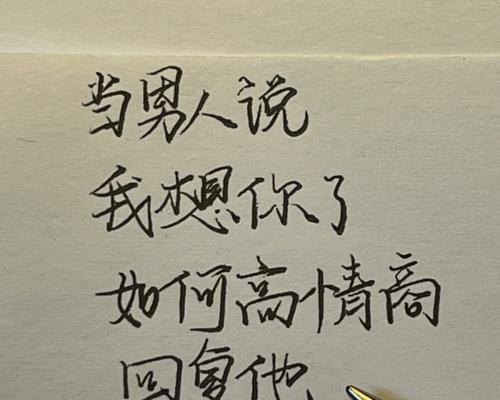 当男人说
我想你了
如何高情商
回复他